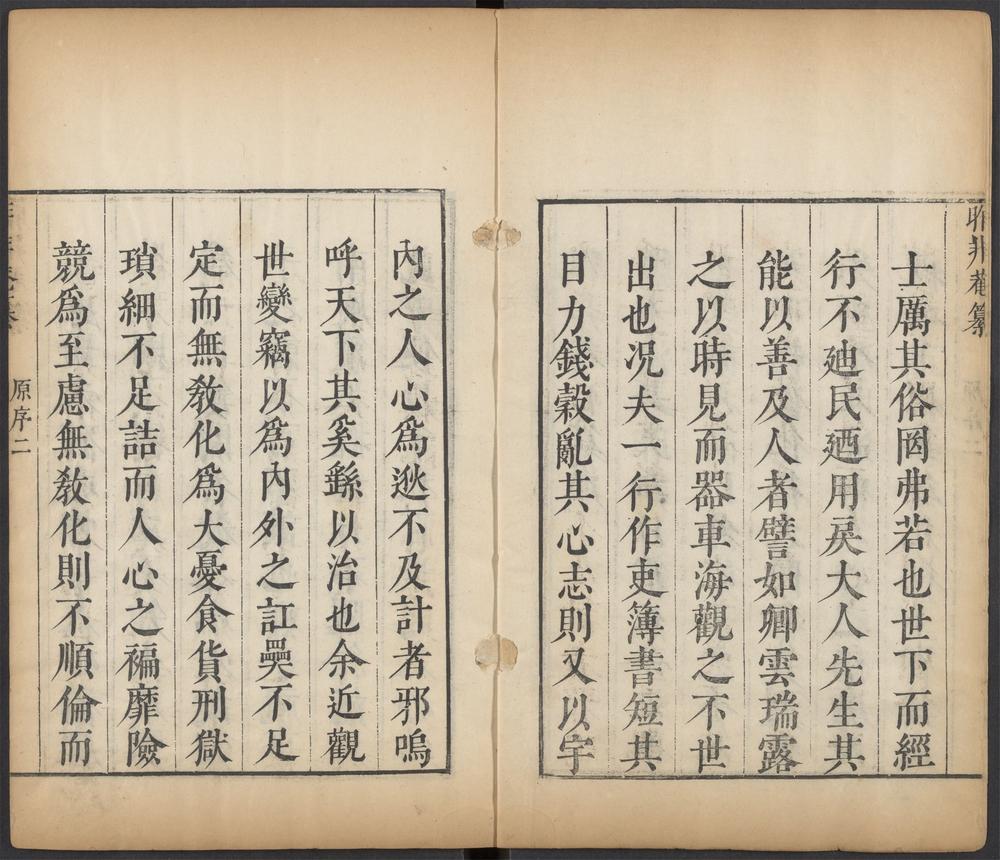 昨非菴纂
士厲其俗罔弗若也世下而經
行不廸民廼用戾大人先生其
能以善及人者譬如卿雲瑞露
之以時見而器車海觀之不世
出也况夫一行作吏簿書短其
目力錢穀亂其心志則又以宇
內之人心爲逖不及計者邪嗚
呼天下其奚繇以治也余近觀
世變竊以爲內外之訌舋不足
定而無敎化爲大憂食貨刑獄
瑣細不足詰而人心之褊靡險
競爲至慮無敎化則不順倫而
原序二